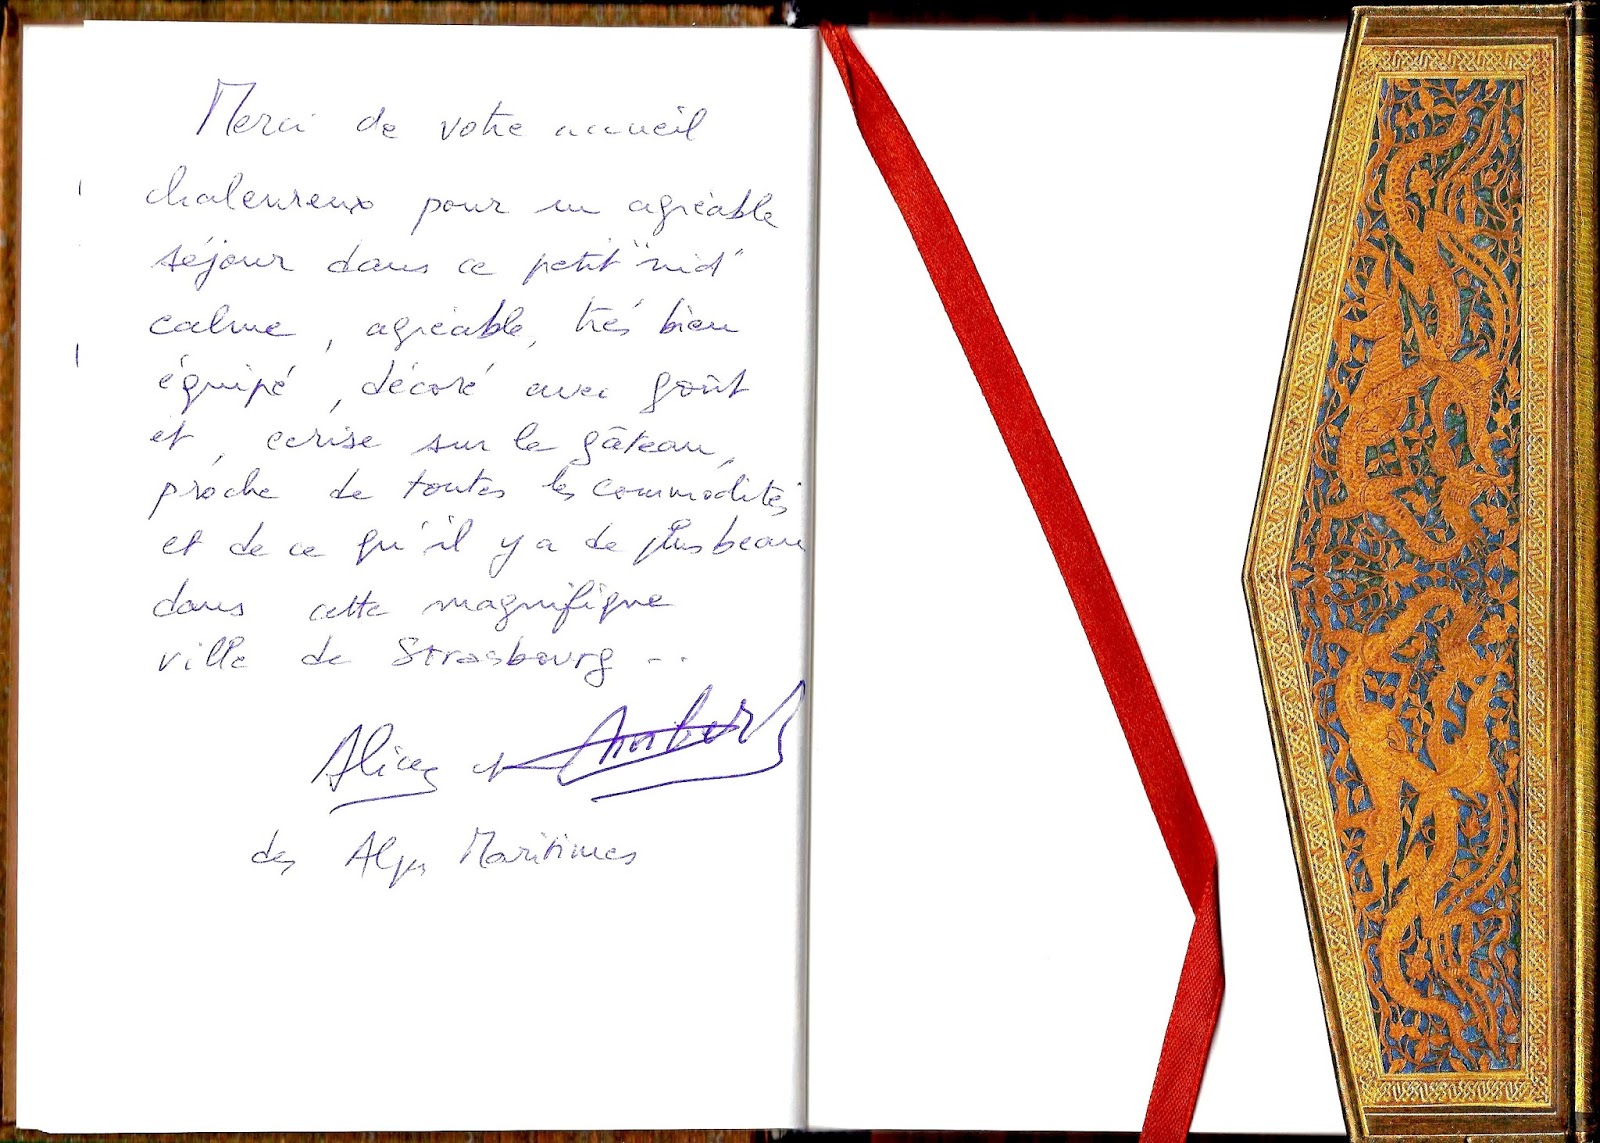 Merci de votre accueil
chaleureux pour un agréable
séjour dans ce petit "nid"
calme, agréable, très bien
équipé, décoré avec goût
et, cerise sur le gâteau,
proche de toutes les commodités
et de ce qu'il y a de plus beau
dans cette magnifique
ville de Strasbourg ..
Alice et
des Alpes Maritimes